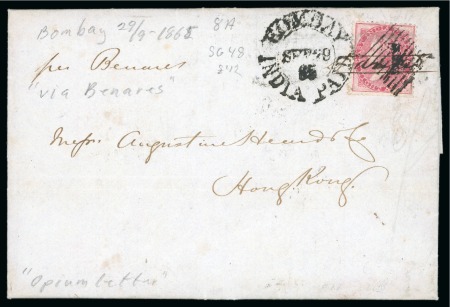 Bombay 29/9-1865
8A
SG48
£42
per Benares
"via Benares"
BOMBAY
SEP 29
65
INDIA PAID
1
Messrs Augustine Heard & Co
Hong Kong.
"Opium letter"